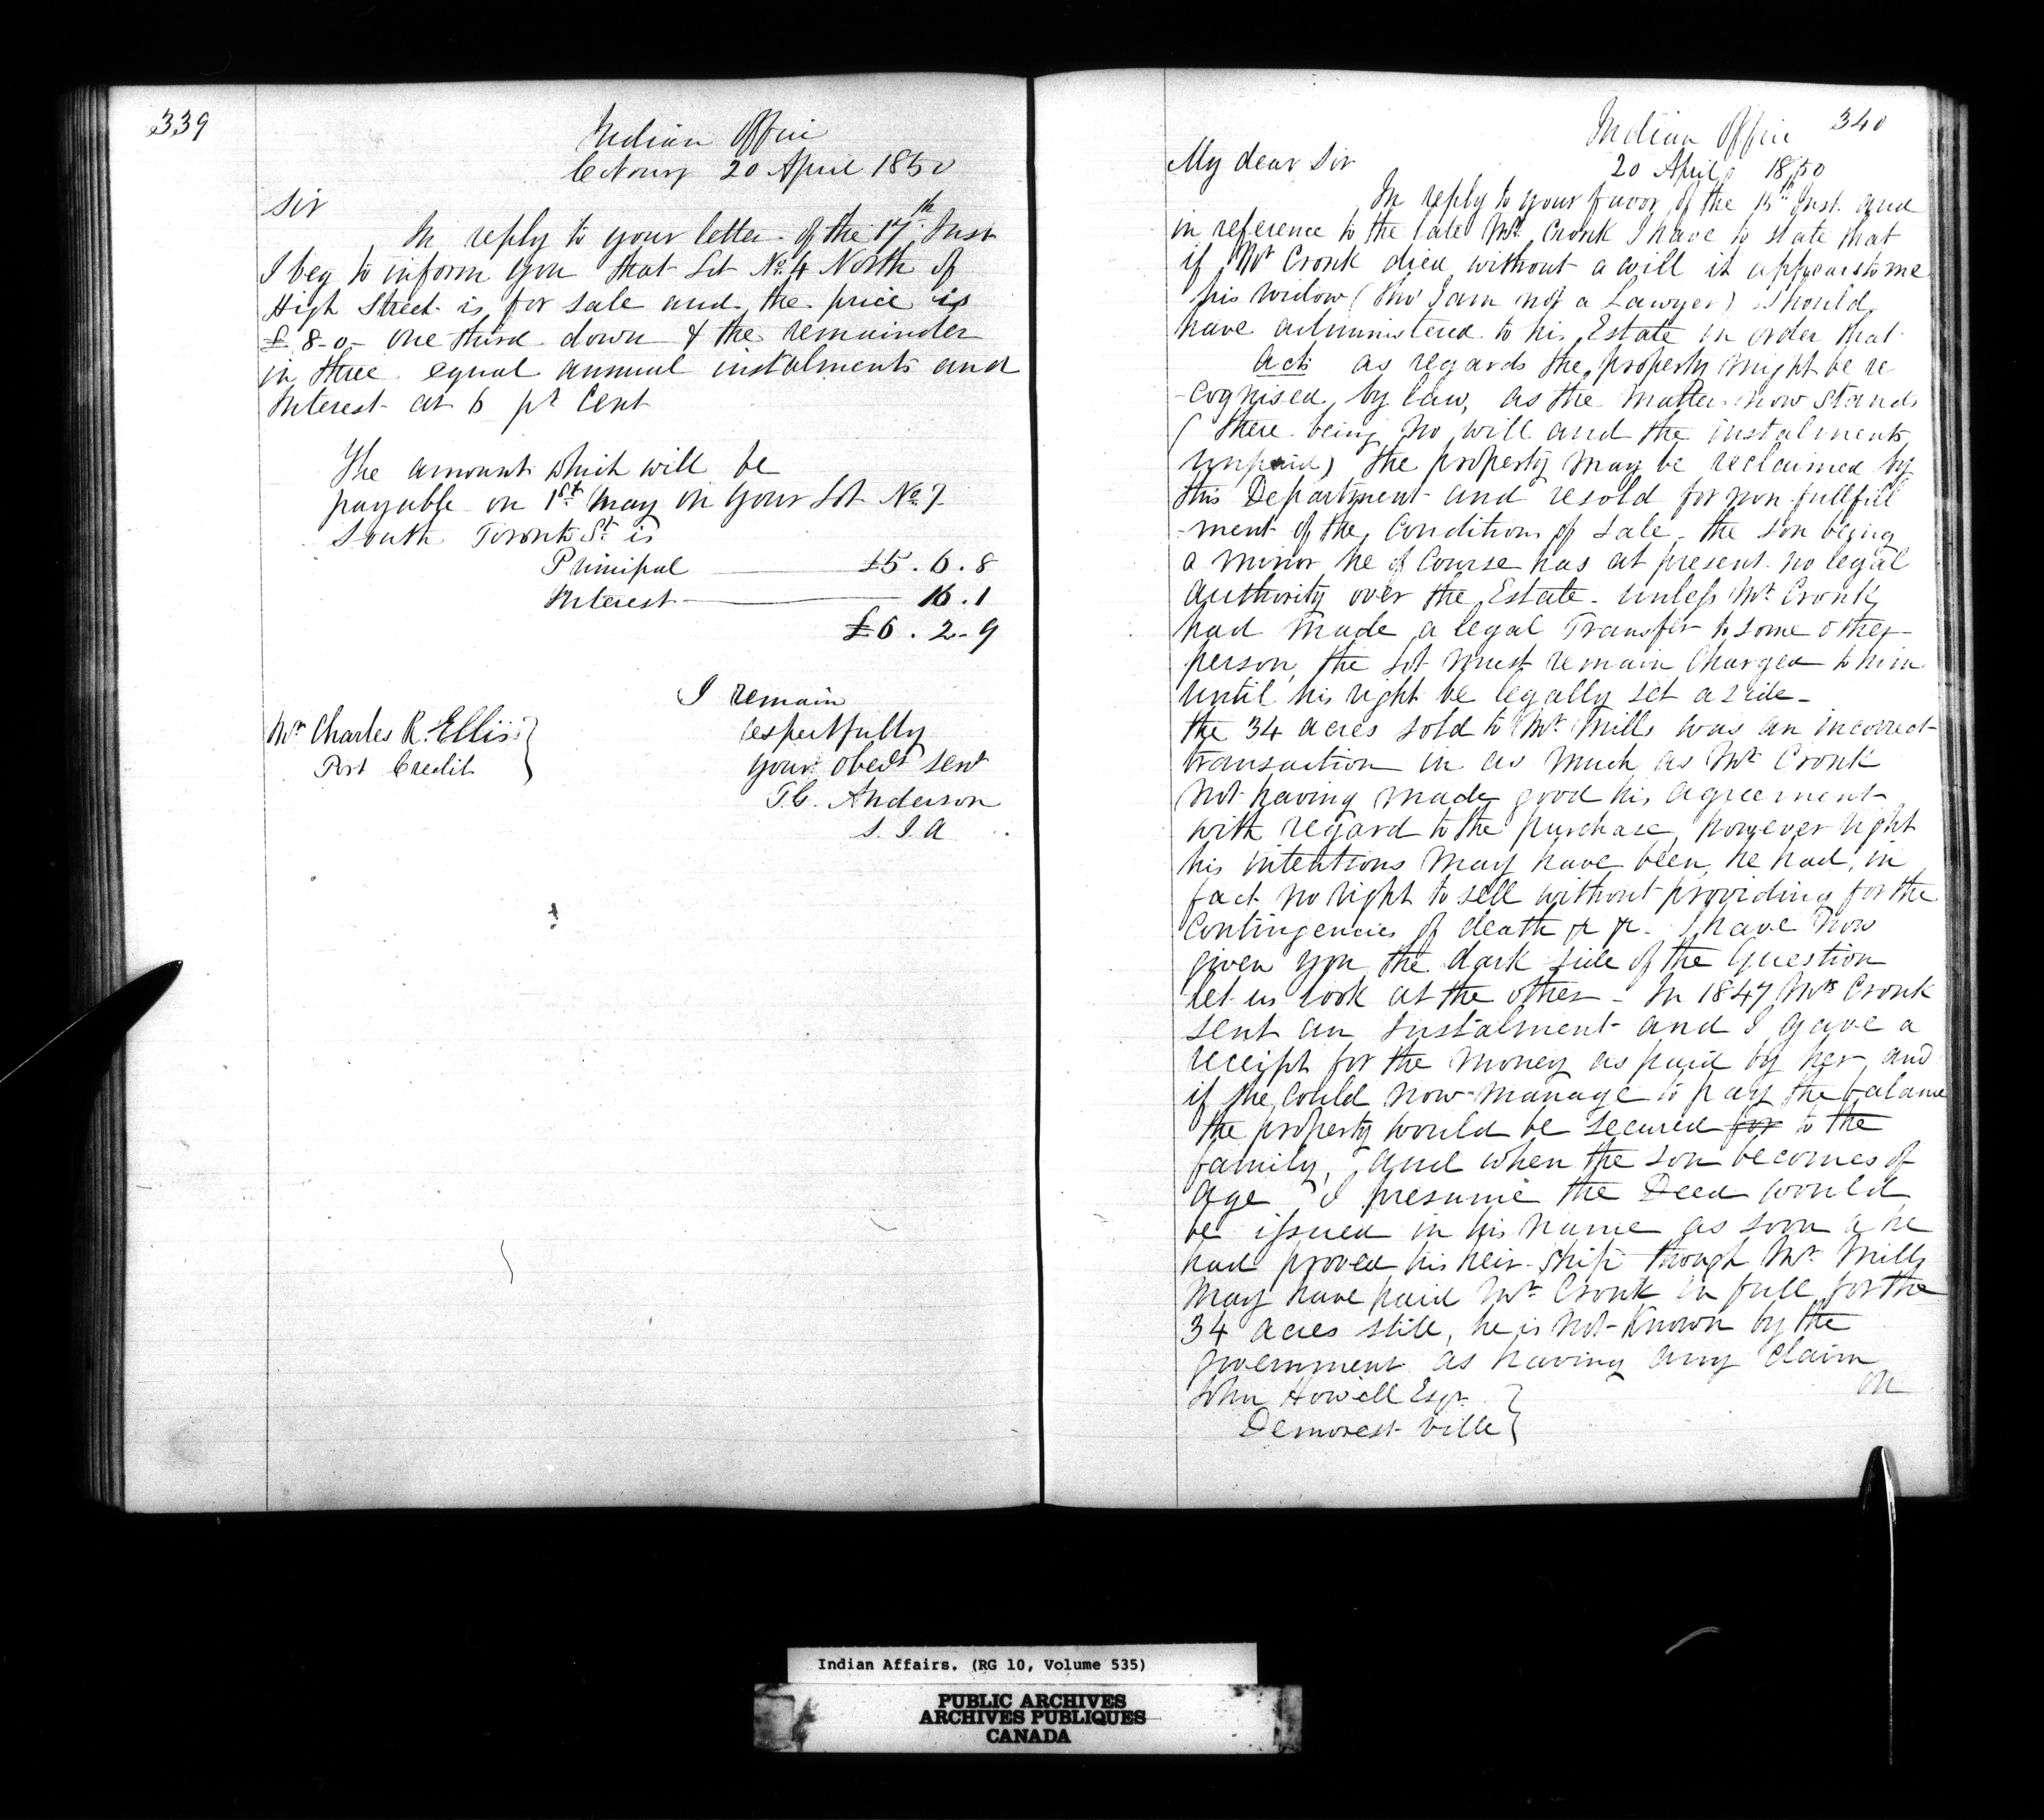 339
Indian Office
Cobourg 20 April 1850
Sir
In reply to your letter of the 17th Inst
I beg to inform you that Lot No. 4 North of
High Street is for sale and the price is
£ 8-0- one third down & the remainder
in three equal annual instalments and
Interest at 6 pr Cent
The amount which will be
payable on 1st May on your Lot No 7
South Toronto St is
Principal £5.6.8
Interest 16.1
£6.2-9
I remain
respectfully
your obedt servt
T.G. Anderson
S.I.A
Mr Charles R. Ellis
Port Credit
340
Indian Office
20 April 1850
My dear Sir
In reply to your favor of the 15th Inst. and
in reference to the late Mr Cronk I have to state that
if Mr Cronk died without a will it appears to me
his widow (tho' I am not a Lawyer) should
have administered to his Estate in order that
acts as regards the property might be re
-cognised by law, as the matter now stands
(there being no will and the instalments
unpaid) the property may be reclaimed by
this Department and resold for non fullfill
-ment of the Conditions of sale. the son being
a minor he of Course has at present no legal
authority over the Estate - unless Mr Cronk
had made a legal Transfer to some other
person, the Lot must remain Charged to him
until his right be legally set aside -
the 34 acres sold to Mr Mills was an incorrect
transaction in as much as Mr Cronk
not having made good his agreement
with regard to the purchase, however right
his intentions may have been, he had, in
fact no right to sell without providing for the
Contingencies of death &c &c. I have now
given you the dark side of the Question
let us look at the other - In 1847 Mrs Cronk
sent an Instalment and I gave a
receipt for the money as paid by her, and
if she could now manage to pay the balance
the property would be secured for to the
family, and when the son becomes of
age I presume the Deed would
be issued in his name as soon a he
had proved his heir-ship though Mr Mills
may have paid Mr Cronk in full for the
34 acres still, he is not known by the
government as having any Claim
on
John Howell Esqr.
Demorest ville
Indian Affairs. (RG 10, Volume 535)
PUBLIC ARCHIVES
ARCHIVES PUBLIQUES
CANADA